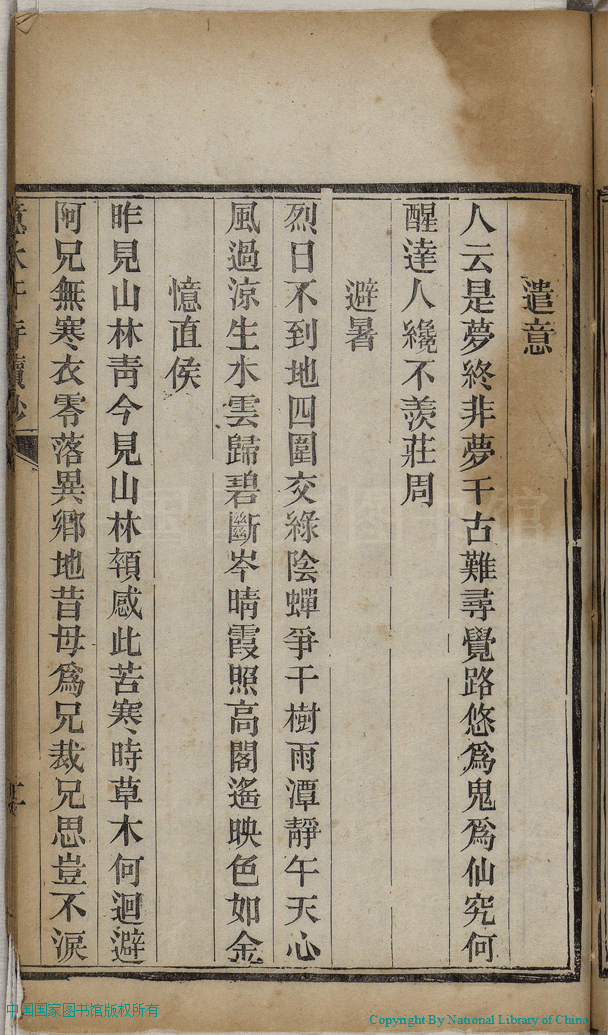 遣意
人云是夢終非夢千古難尋覺路悠爲鬼爲仙究何
醒達人纔不羨莊周
避暑
烈日不到地四圍交綠陰蟬爭千樹雨潭靜午天心
風過涼生水雲歸碧斷岑晴霞照高閣遙映色如金
憶直侯
昨見山林靑今見山林頳感此苦寒時草木何迴避
阿兄無寒衣零落異鄉地昔母爲兄裁兄思豈不淚
中国国家图书馆版权所有
Copyright By National Library of China